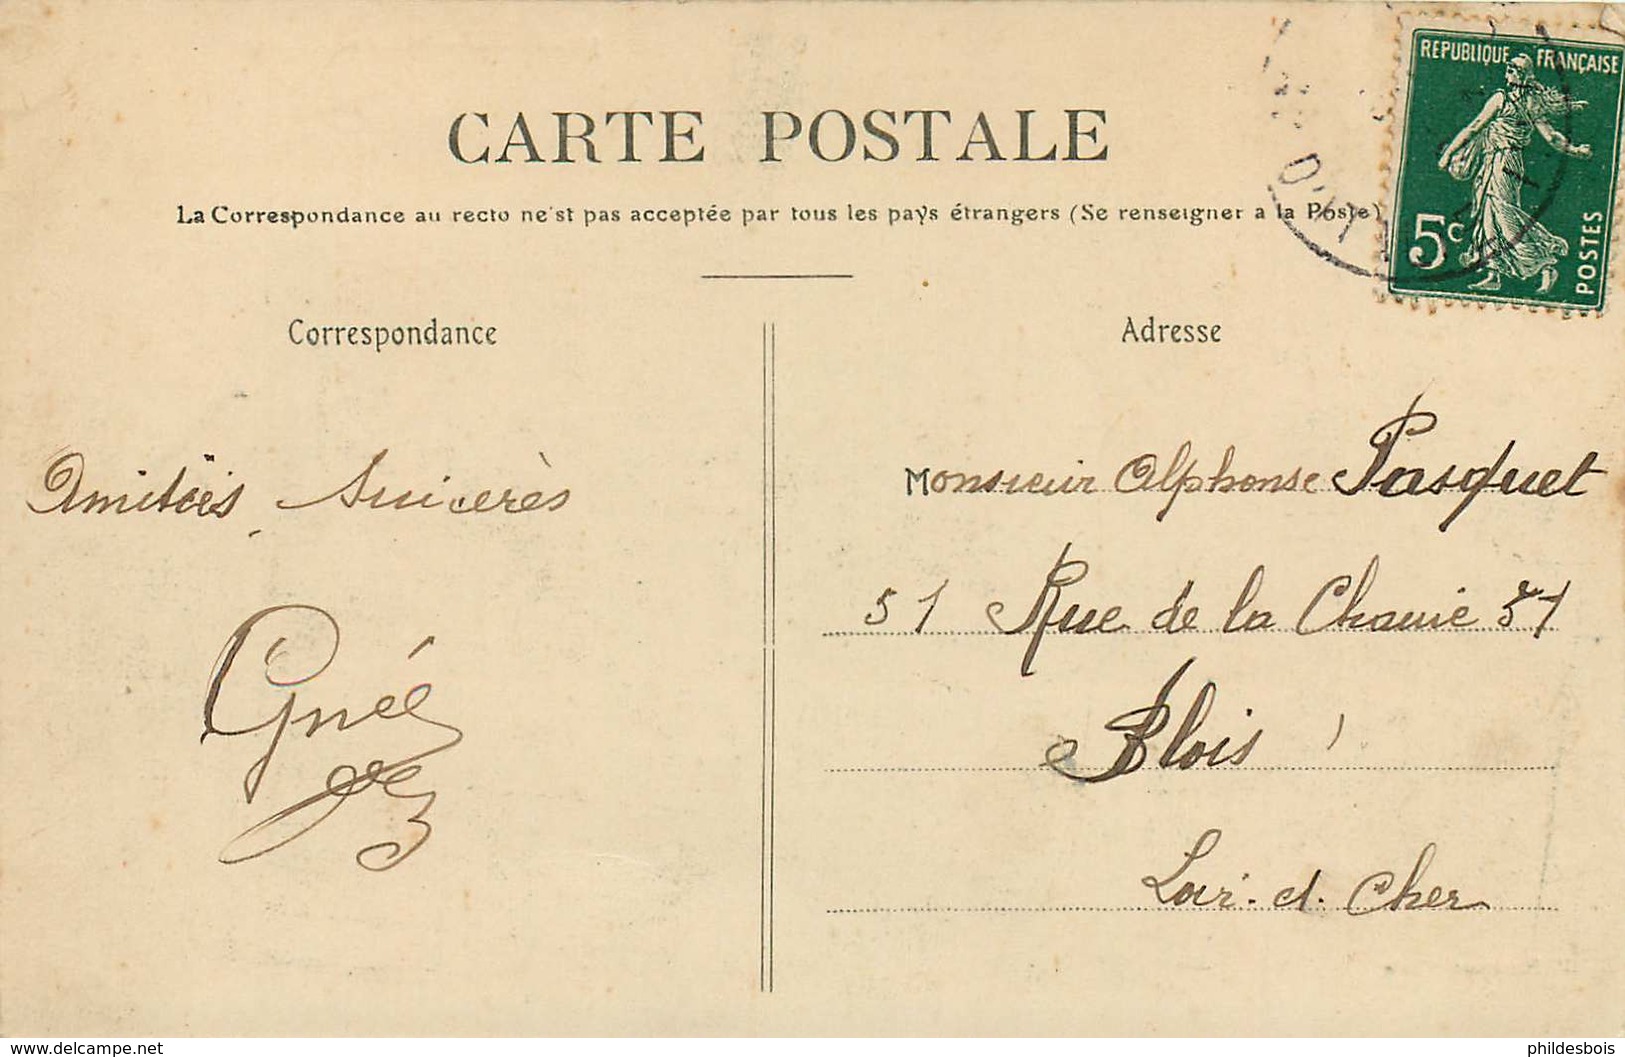 CARTE POSTALE
La Correspondance au recto ne'st pas acceptée par tous les pays étrangers (Se renseigner a la Poste)
REPUBLIQUE FRANÇAISE
5c
POSTES
Correspondance
Amitiés Sincerès
Adresse
Monsieur Alphonse Pasquet
51 Rue de la Chaine 51
Blois
Loir-et-Cher
www.delcampe.net
phildesbois